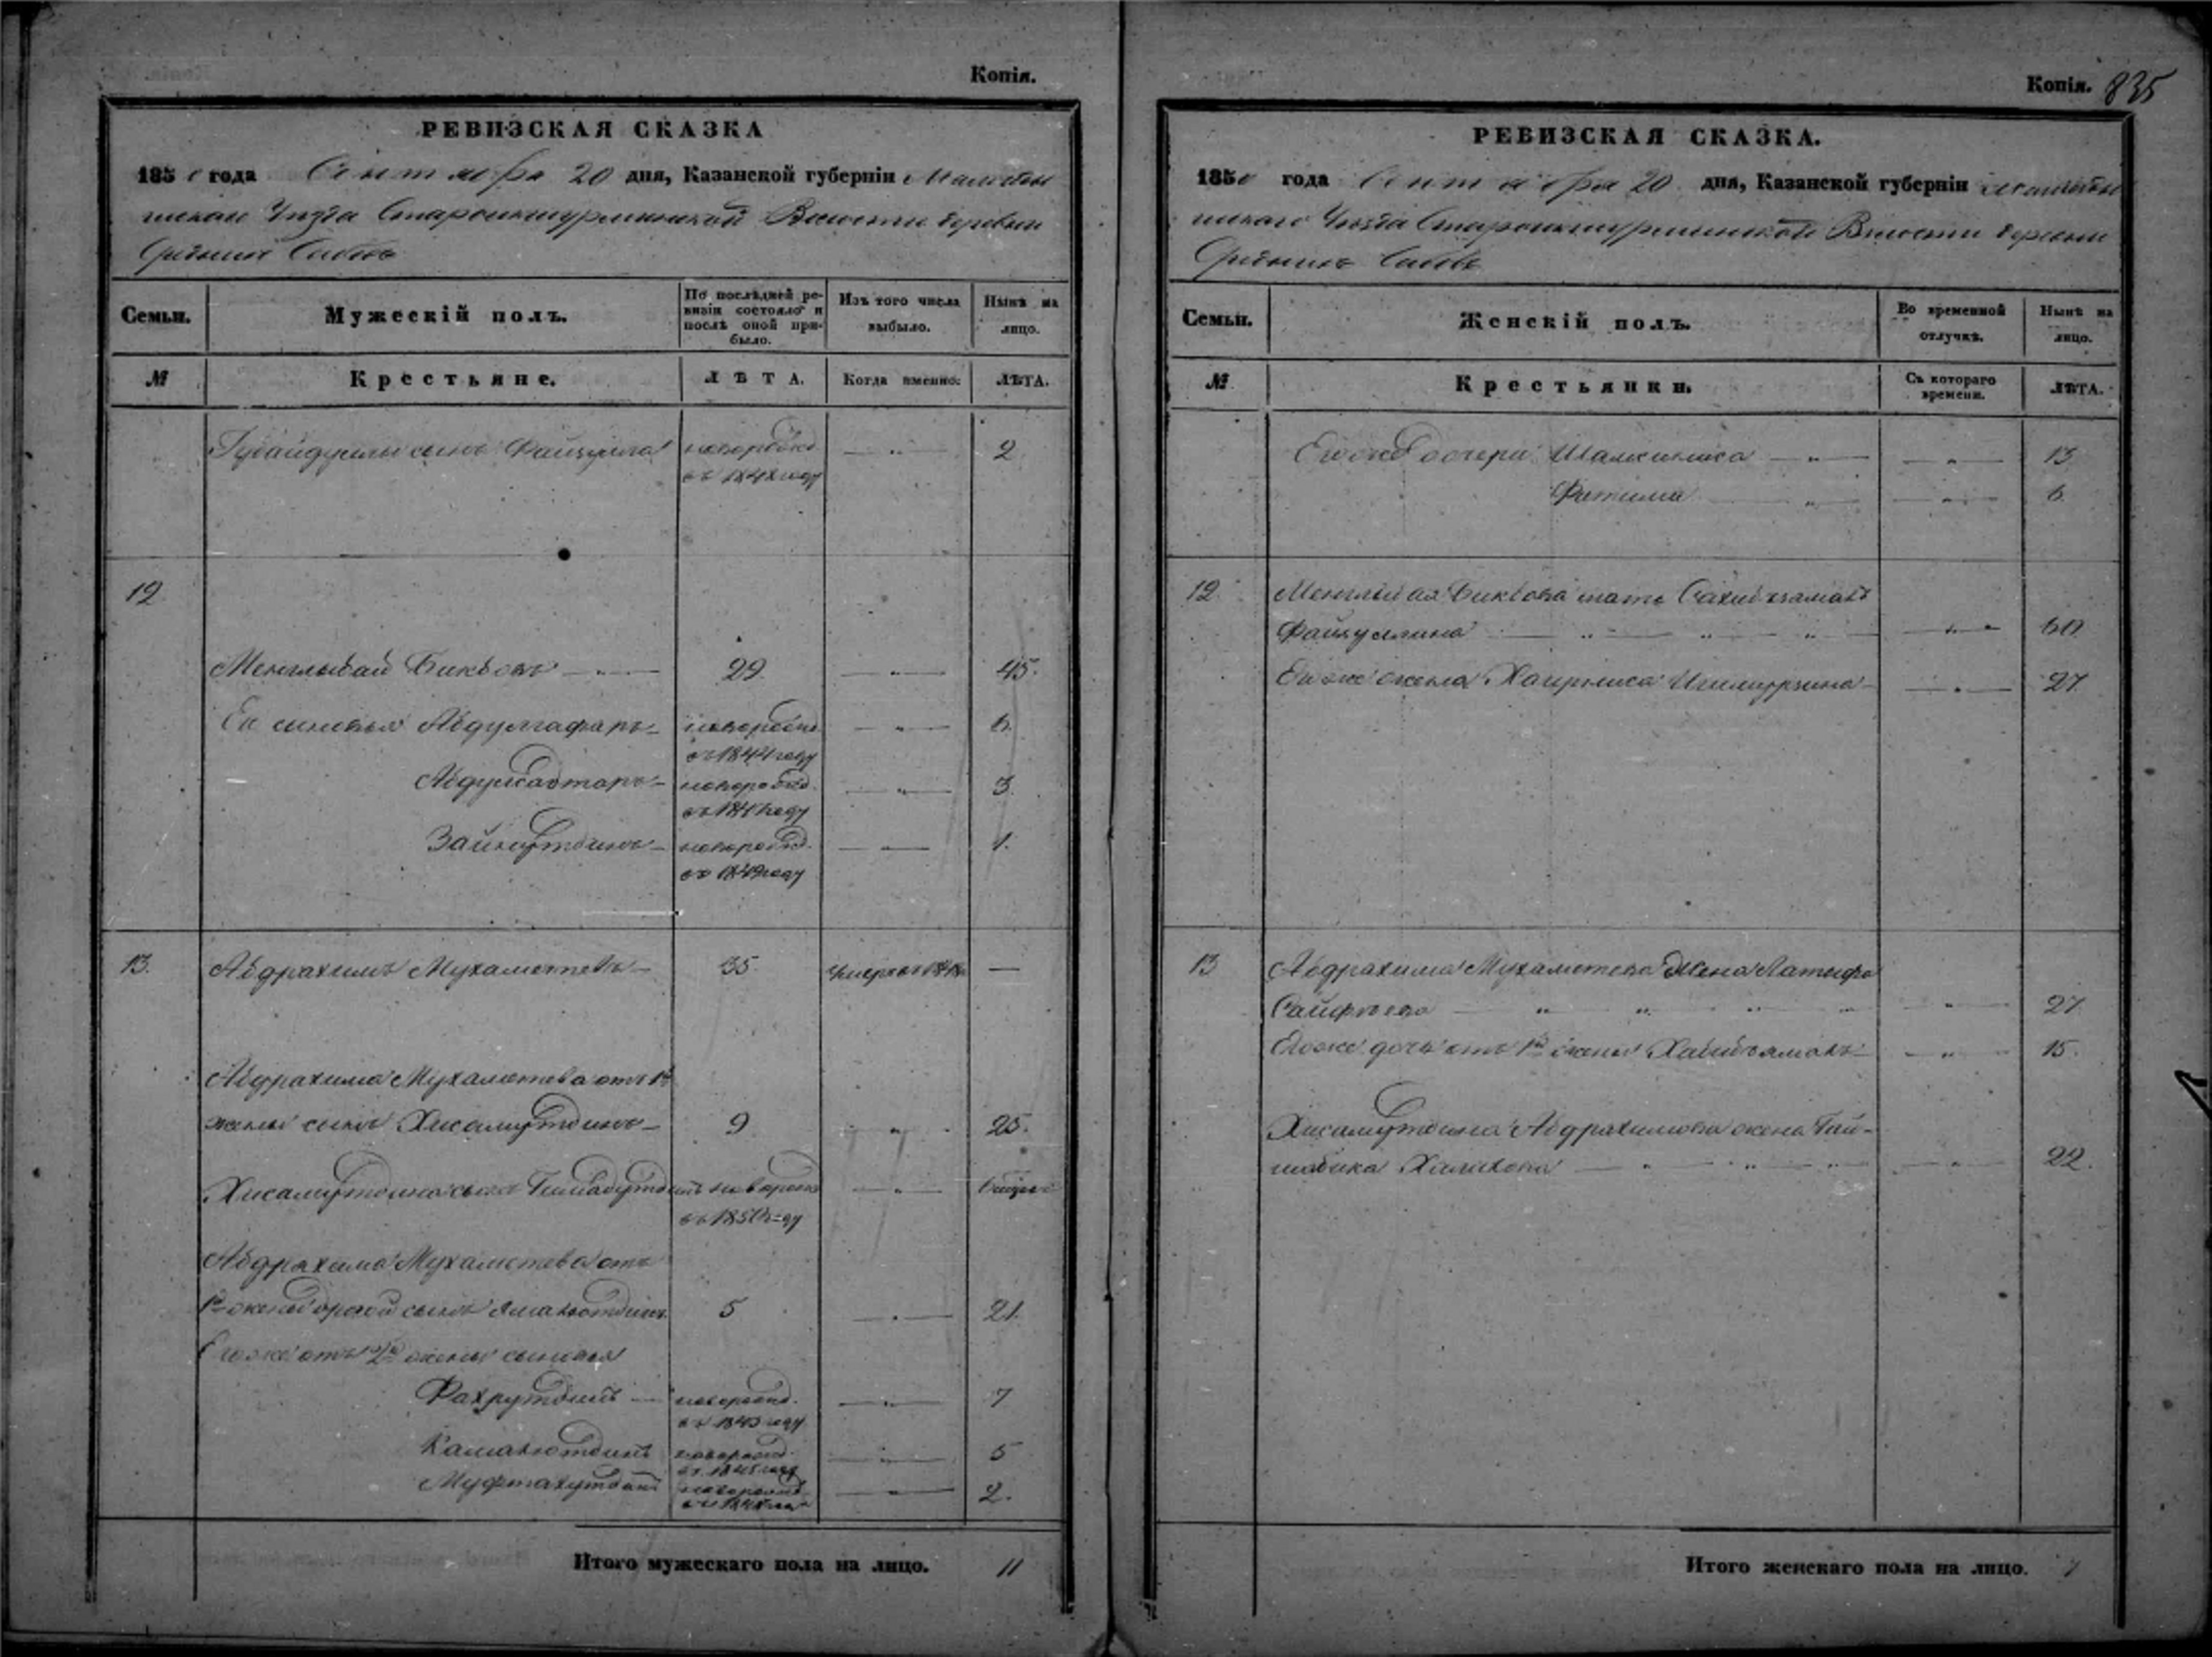 Копія.
РЕВИЗСКАЯ СКАЗКА
1850 года Сентября 20 дня, Казанской губерніи Мамадыш
скаго Уезда Староикшурминской Волости деревни
Среднихъ Сабовъ
Семьи.
Мужескій полъ.
По послѣдней ре-
визіи состояло и
послѣ оной при-
было.
Изъ того числа
выбыло.
Нынѣ на
лицо.
№
Крестьяне.
ЛѢТА.
Когда именно:
ЛѢТА.
Губайдуллы сынъ Файзулла новорожд. — " — 2
въ 1848 году
12
Менглыбай Бикѣевъ — " — 29 — " — 45.
Ею сыновья Абдулгафаръ новорожд. — " — 6.
въ 1844 году
Абдулсаттаръ новорожд. — " — 3
году
Зайнутдинъ новорожд. — " — 1.
въ 1849 году
13. Абдрахимъ Мухаметевъ 35 Умеръ въ —
Абдрахима Мухаметева отъ 1й
жены сынъ Хисамутдинъ 9 " 25.
Хисамутдина сынъ новорожд — " —
въ 1850 году
Абдрахима Мухаметева отъ
1й жены другой сынъ 5 — " — 21.
Егоже отъ 2й жены сыновья
Фахрутдинъ — новорожд. — " — 7
въ 1843 году
Камалютдинъ новорожд. — " — 5
въ 1845 году
Муфтахутдинъ новорожд. — " — 2.
въ 1848 году
Итого мужескаго пола на лицо. 11
Копія. 835
РЕВИЗСКАЯ СКАЗКА.
1850 года Сентября 20 дня, Казанской губерніи Мамадыш
скаго Уезда Староикшурминской Волости деревни
Среднихъ Сабовъ
Семьи.
Женскій полъ.
Во временной
отлучкѣ.
Нынѣ на
лицо.
№
Крестьянки.
Съ котораго
времени.
ЛѢТА.
Егоже дочери — " — — " — 13
Фатима — " — — " — 6.
12. Менглыбая Бикѣева мать
Файзуллина — " — " — " — — " — 60
Егоже жена — " — 27
13 Абдрахима Мухаметева жена Латифа
Сайфѣева — " " " — — " — 27
Егоже дочь отъ 1й жены — " — 15.
Хисамутдина Абдрахимова жена Гай-
шабика Халитова — " — " — " — — " — 22.
Итого женскаго пола на лицо. 7